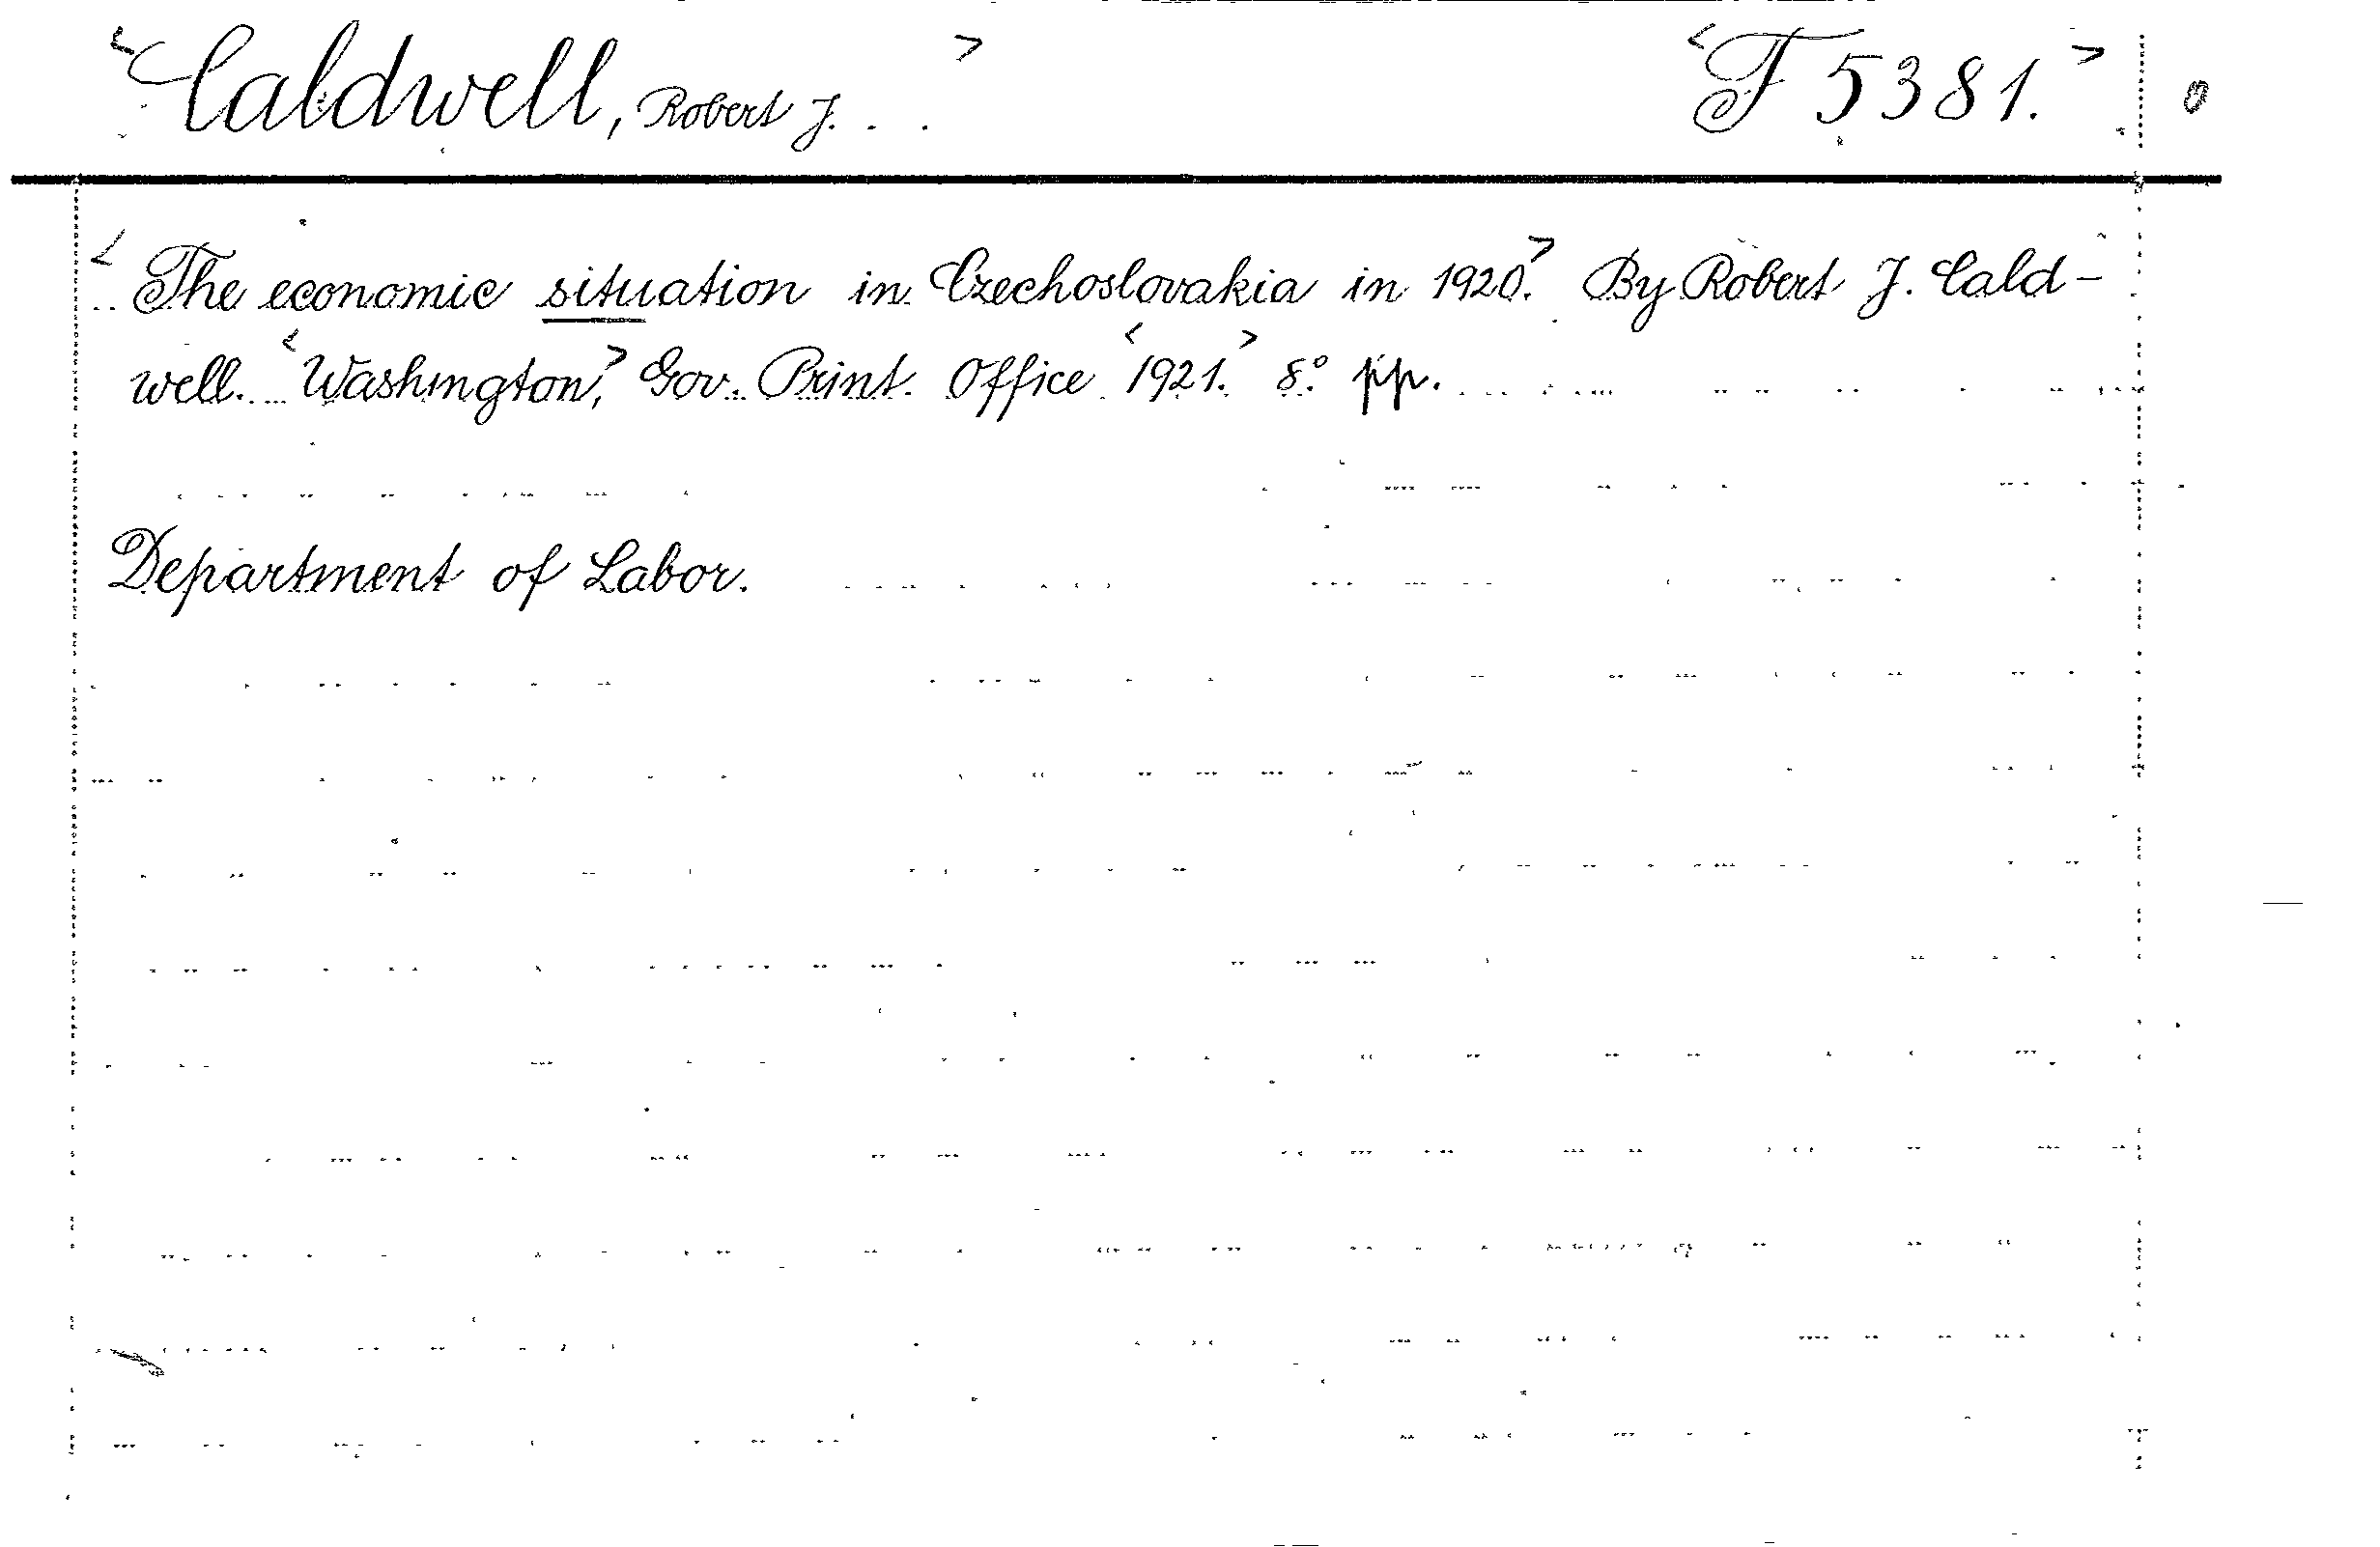 <Caldwell, Robert J.> <F 5381.>
<The economic situation in Czechoslovakia in 1920.> By Robert J. Cald-
well. <Washington,> Gov. Print. Office <1921.> 8.° pp.
Department of Labor.